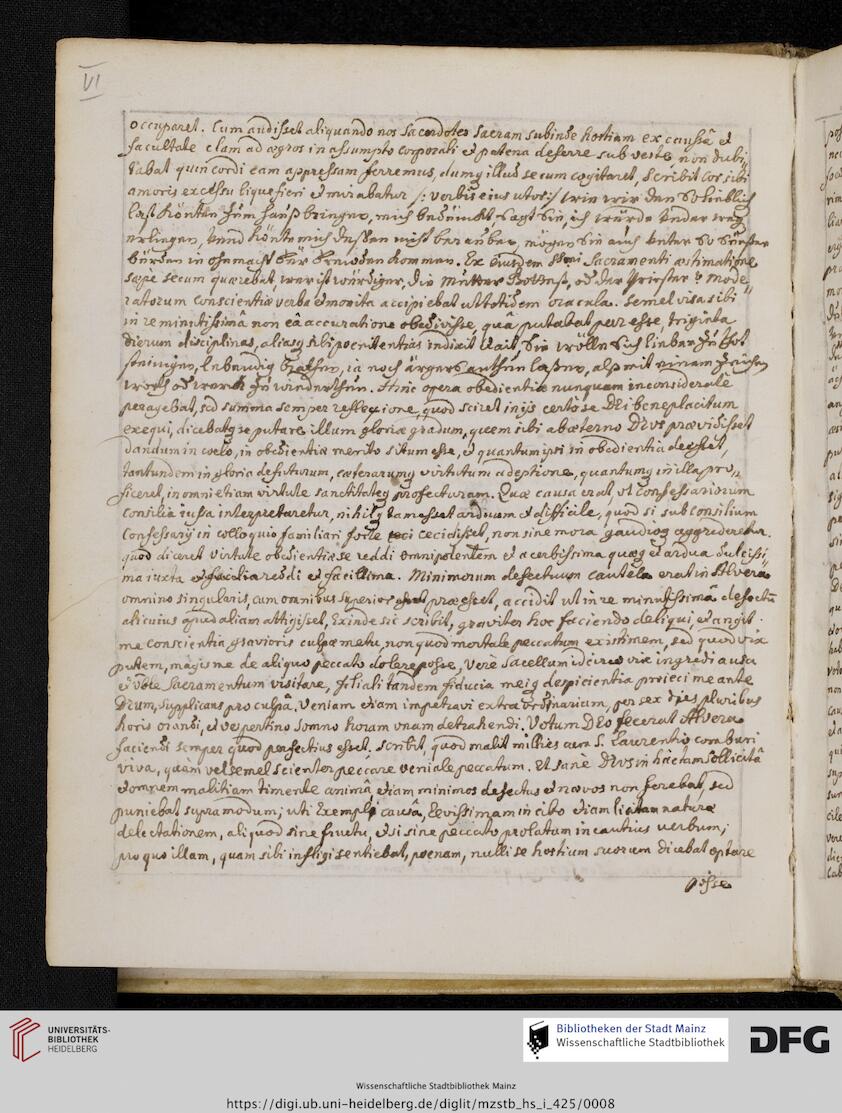 VI
occuparet. Cum audisset aliquando nos Sacerdotes Sacram subinde hostiam ex causâ et
facultate clam ad ægros in assumpto corporali et patena deferre sub veste, non dubi„
tabat quin cordi eam appressam ferremus, dumq illud secum cogitaret, scribit cor sibi
amoris excessu liquefieri et mirabatur /: verbis eius utor :/ wie wir den so lieblich
last könten zum hauß bringen, mich bedunckt sagt sie, ich würde under weg
erligen, unnd könte mich dessen nicht berauben, mögen sie auch unter so süssen
bürden in ohnmacht für freuden kommen. Ex eiusdem SSmi Sacramenti æstimatione
sæpe secum quærebat, wer ist würdiger, die Mutter Gottes, od der Priester? Mode„
ratorum conscientiæ verba et monita accipiebat ut totidem oracula. Semel visa sibi
in re minutissimâ non eâ accuratione obedivisse, quâ putabat par esse, triginta
dierum disciplinas, aliasq sibi poenitentias indixit
lebendig, ja noch ärgers anthun lassen, alß mit einem
wort od werck zu widerthun. Hinc opera obedientiæ nunquam inconsiderate
peragebat, sed summa semper reflexione, quod sciret in ijs certo se DEi beneplacitum
exequi, dicebatq se putare illum gloriæ gradum, quem sibi ab æterno DEus prævidisset
dandum in coelo, in obedientiæ merito situm esse, et quantum ipsi in obedientia deesset,
tantundem in gloria defuturum, cæterarumq virtutum adeptione, quantumq in illa pro„
ficeret, in omni etiam virtute sanctitateq profecturam. Quæ causa erat, ut Confessariorum
consilia iussa interpretaretur, nihilq tam esset arduum et difficile, quod si sub consilium
Confessarij in colloquio familiari forte cecidisset, non sine mora gaudioq aggrederetur.
quod diceret virtute obedientiæ se reddi omnipotentem et acerbissima quæq et ardua dulcissi„
ma iuxta reddi et facillima. Minimorum defectuum cautela erat in Alvera
omnino singularis, cum omnibus superior præesset, accidit ut in re minutissimâ defectum
alicuius apud aliam attigisset, Exinde sic scribit, graviter hoc faciendo deliqui, et angit
me conscientia gravioris culpæ metu, non quod mortale peccatum existimem, sed quod vix
putem, magis me de aliquo peccato dolere posse, Vere sacellum idcirco vix ingredi ausa
et Vble Sacramentum visitare, filiali tandem fiducia meiq despicientia proieci me ante
DEum, supplicans pro culpâ. Veniam etiam impetravi extraordinarium, per sex dies pluribus
horis orandi, et vespertino somno horam unam detrahendi. Votum DEo fecerat Alvera
faciendi semper quod perfectius esset. Scribit, quod malit millies cum S. Laurentio comburi
viva, quàm vel semel scienter peccare veniale peccatum. Et sane DEus in hac tam sollicitâ
et omnem malitiam timente animâ etiam minimos defectus et nævos non ferebat, sed
puniebat supra modum; uti Exempli causâ, levissimam in cibo etiam licitam naturæ
delectationem, aliquod sine fructu, etsi sine peccato prolatum incautius verbum;
pro quo illam, quam sibi infligi sentiebat, poenam, nulli se hostium suorum dicebat optare
posse
UNIVERSITÄTS-
BIBLIOTHEK
HEIDELBERG
Bibliotheken der Stadt Mainz
Wissenschaftliche Stadtbibliothek
DFG
Wissenschaftliche Stadtbibliothek Mainz
https://digi.ub.uni-heidelberg.de/diglit/mzstb_hs_i_425/0008